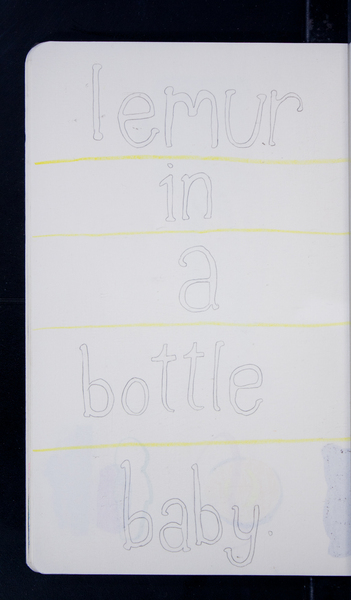 lemur
in
a
bottle
baby.